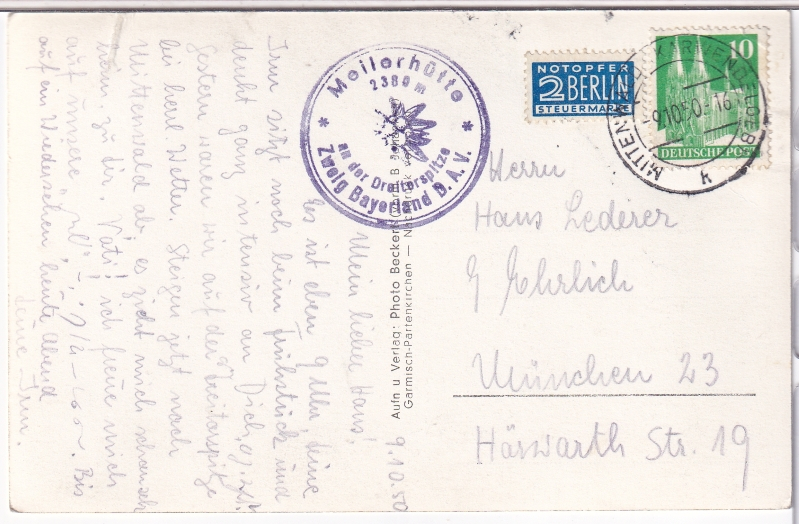 9.10.50
Mein lieber Hans!
Es ist eben 9 Uhr, Deine
Irm sitzt noch beim Frühstück und
denkt ganz intensiv an Dich.
Gestern waren wir auf der Dreitorspitze
bei herrl. Wetter. Steigen jetzt nach
Mittenwald ab, es zieht mich
zu Dir, Vati! Ich freue mich
auf unsere Bis
auf ein Wiedersehen heute Abend
Deine Irm.
Meilerhütte
2380 m
an der Dreitorspitze
Zweig Bayerland D.A.V.
Aufn u Verlag: Photo Becker
Garmisch-Partenkirchen —
NOTOPFER
2 BERLIN
STEUERMARKE
10
DEUTSCHE POST
MITTENWALD
-9.10.50.-16
Herrn
Hans Lederer
b/ Ehrlich
München 23
Hörwarth Str. 19